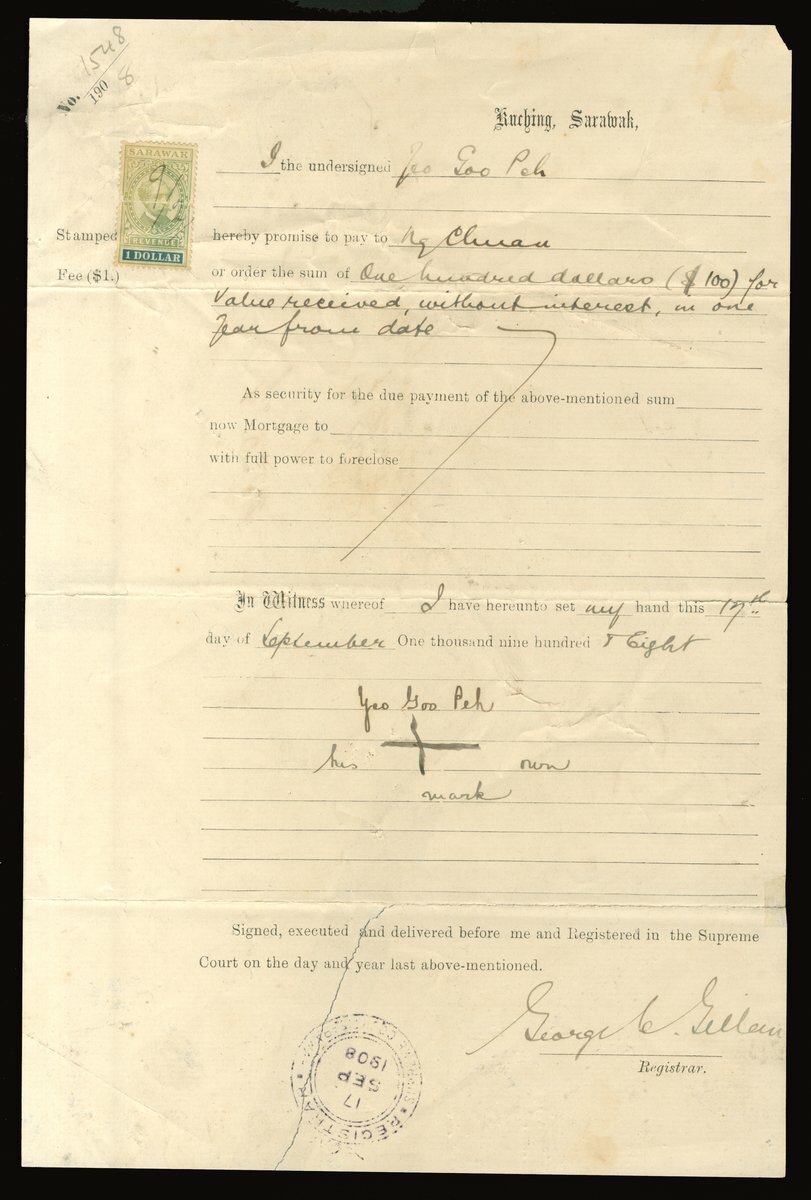 No. 1548
190 8
Kuching, Sarawak,
I the undersigned Yeo Goo Peh
SARAWAK
REVENUE
1 DOLLAR
Stamped
Fee ($1.)
hereby promise to pay to Ng Chuan
or order the sum of One hundred dollars ($ 100) for
Value received, without interest, in one
Year from date
As security for the due payment of the above-mentioned sum
now Mortgage to
with full power to foreclose
In Witness whereof I have hereunto set my hand this 17th
day of September One thousand nine hundred & Eight
Yeo Goo Peh
his own
mark
Signed, executed and delivered before me and Registered in the Supreme
Court on the day and year last above-mentioned.
George C. Gillan
Registrar.
REGISTRAR
17
SEP
1908